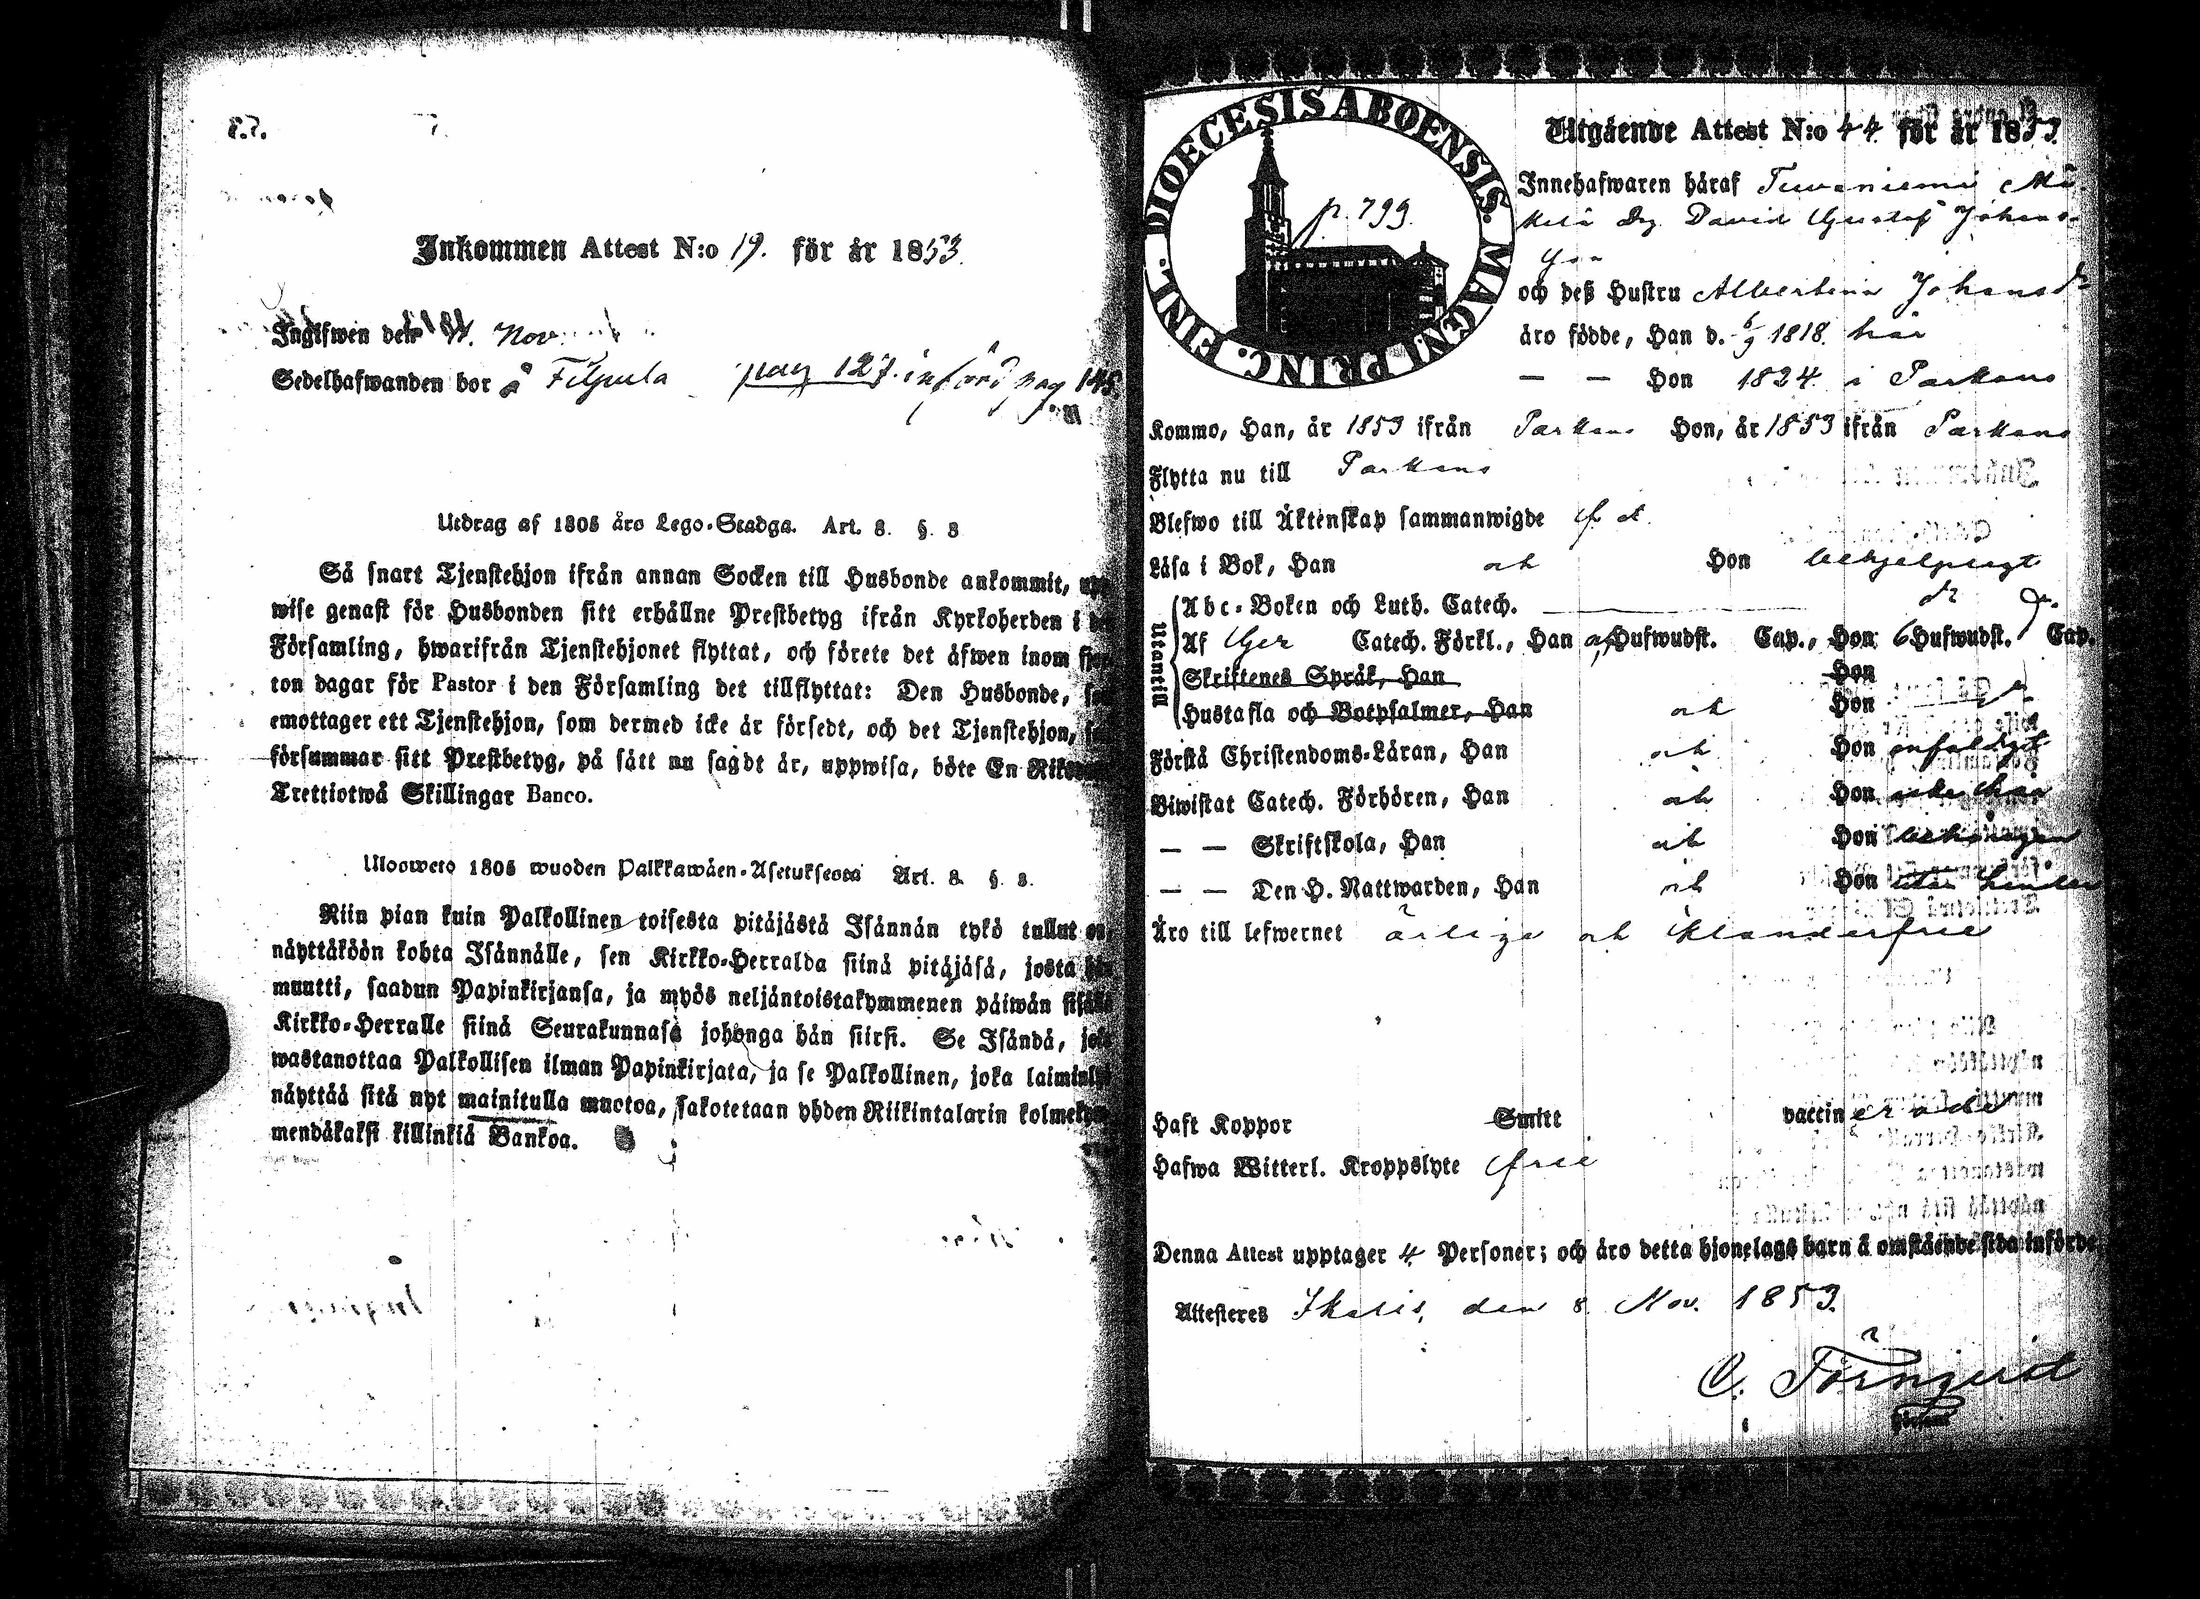 Inkommen Attest N:o 19. för år 1853.
Ingifwen den Nov.
Sedelhafwanden bor å Filpula pag 127. införd pag
Utdrag af 1805 års Lego-Stadga. Art. 8. §. 8
Så snart Tjenstehjon ifrån annan Socken till Husbonde ankommit,
wise genast för Husbonden sitt erhållne Prestbetyg ifrån Kyrkoherden i
Församling, hwarifrån Tjenstehjonet flyttat, och förete det äfwen inom
ton dagar för Pastor i den Församling det tillflyttat: Den Husbonde,
emottager ett Tjenstehjon, som dermed icke är försedt, och det Tjenstehjon,
försummar sitt Prestbetyg, på sätt nu sagdt är, uppwisa, böte En
Trettiotwå Skillingar Banco.
Uloswето 1805 wuoden Palkkawäen-Asetuksesta Art. 8. §. 8.
Niin pian kuin Palkollinen toisesta pitäjästä Isännän tykö tullut on,
näyttäköön kohta Isännälle, sen Kirkko-Herralda siinä pitäjäsä, josta hän
muutti, saadun Papinkirjansa, ja myös neljäntoistakymmenen päiwän
Kirkko-Herralle siinä Seurakunnasa johonga hän siirsi. Se Isändä,
wastanottaa Palkollisen ilman Papinkirjata, ja se Palkollinen, joka
näyttää sitä nyt mainitulla muotoa, sakotetaan yhden Riikintalarin
mendäkaksi killinkiä Bankoa.
DIOECESIS ABOENSIS. MAGNI PRINC. FINL.
p. 799.
Utgående Attest N:o 44 för år 1853.
Innehafwaren häraf
David Gustaf Johans-
son
och deß Hustru Albertina Johansdr
äro födde, Han d. 6/9 1818. här
— — Hon 1824 i Parkano
Kommo, Han, år 1853 ifrån Parkano Hon, år 1853 ifrån Parkano
Flytta nu till Parkano
Blefwo till Äktenskap sammanwigde
Läsa i Bok, Han och Hon behjelpligt
Utantill
Abc-Boken och Luth. Catech.
Af Catech. Förkl., Han Hufwudst. Cap., Hon 6 Hufwudst. Cap.
Skriftenes Språk, Han Hon
Hustafla och Botpsalmer, Han och Hon
Förstå Christendoms-Läran, Han och Hon enfaldigt
Biwistat Catech. Förhören, Han och Hon
— — Skriftskola, Han och Hon
— — Den H. Nattwarden, Han och Hon
Äro till lefwernet ärliga och klanderfrie
Haft Koppor Smitt vaccinerade
Hafwa Witterl. Kroppslyte frie
Denna Attest upptager 4 Personer; och äro detta hjonelags barn å omstående sida införde
Attesteres Ikalis, den 8 Nov. 1853.